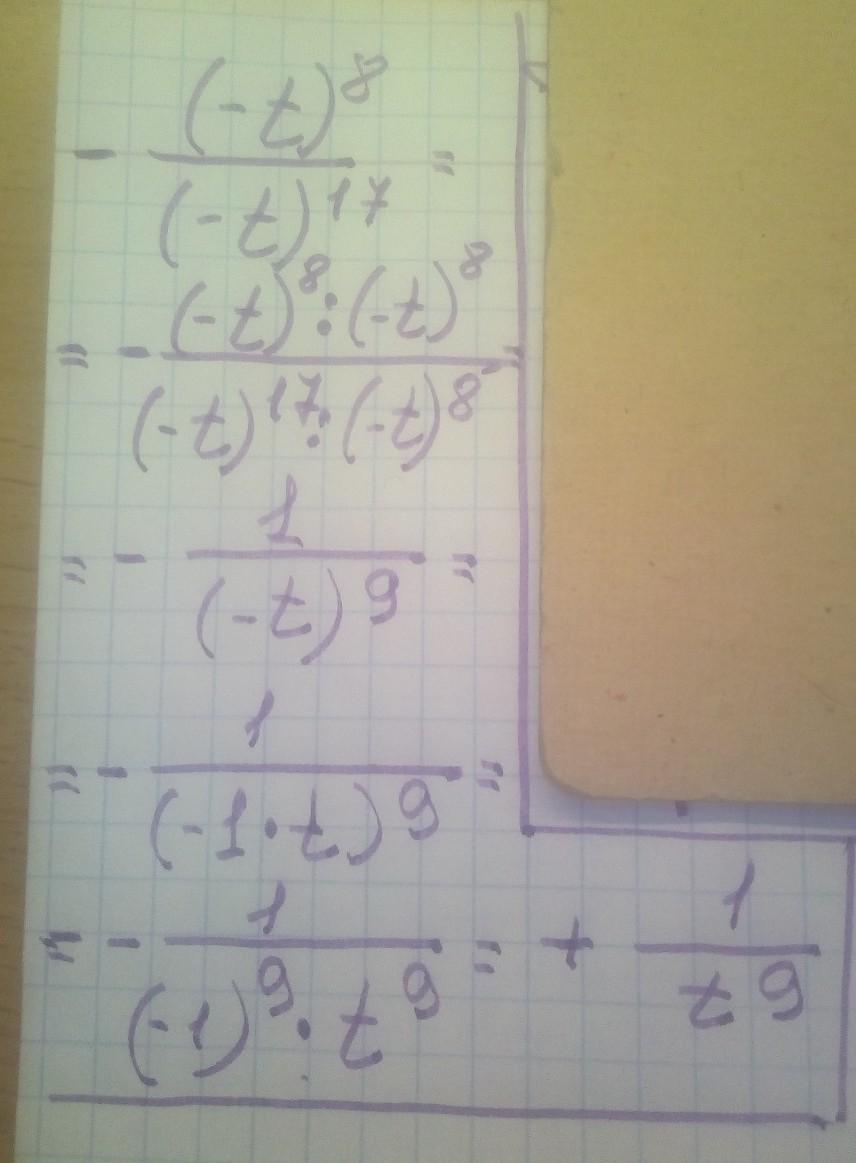 - (-t)^8 / (-t)^17 =
= - (-t)^8 : (-t)^8 / (-t)^17 : (-t)^8 =
= - 1 / (-t)^9 =
= - 1 / (-1 · t)^9 =
= - 1 / (-1)^9 · t^9 = + 1 / t^9